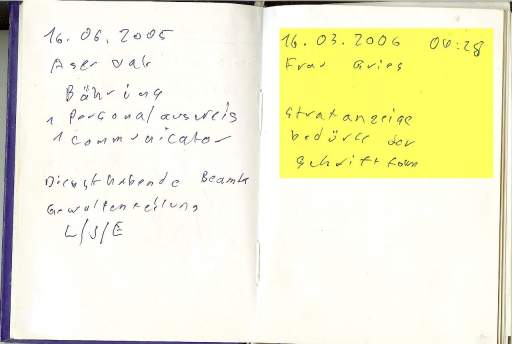 16.06.2005
Aservat
Bähring
1 Personalausweis
1 Communicator
Diensthabende Beamte
Gewaltenteilung
L/S/E
16.03.2006 04:28
Frau Gries
Strafanzeige
bedürfe der
Schriftform